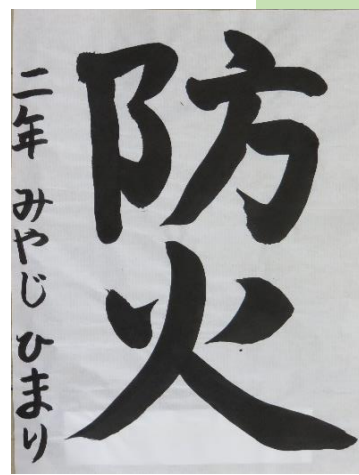 防火
二年 みやじ ひまり